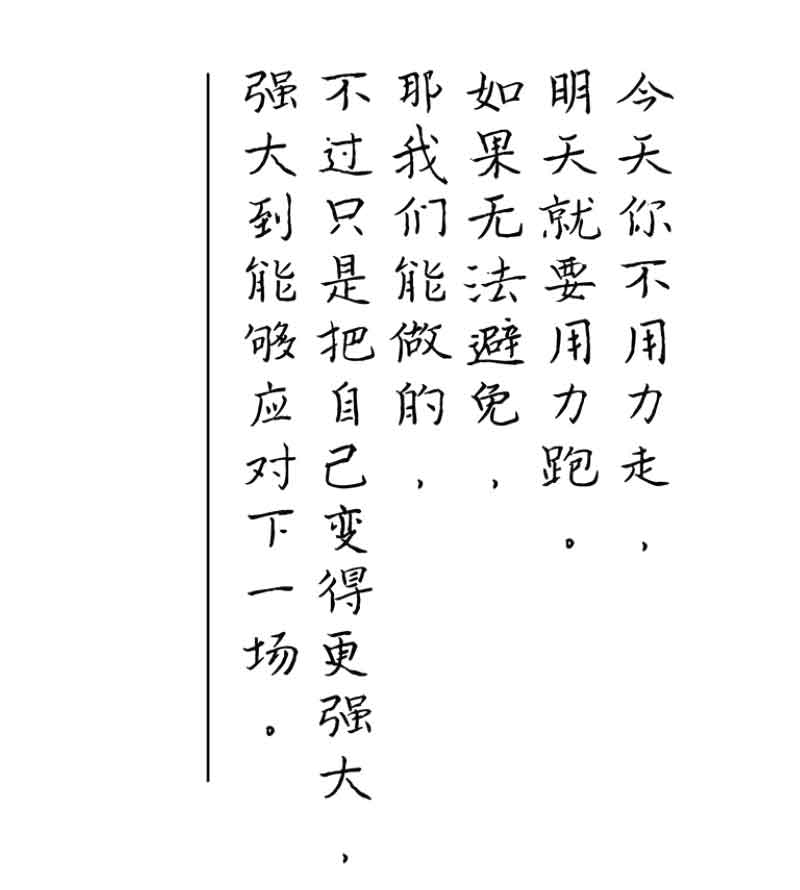 今天你不用力走，
明天就要用力跑。
如果无法避免，
耶我们能做的，
不过只是把自己变得更强大，
强大到能够应对下一场。